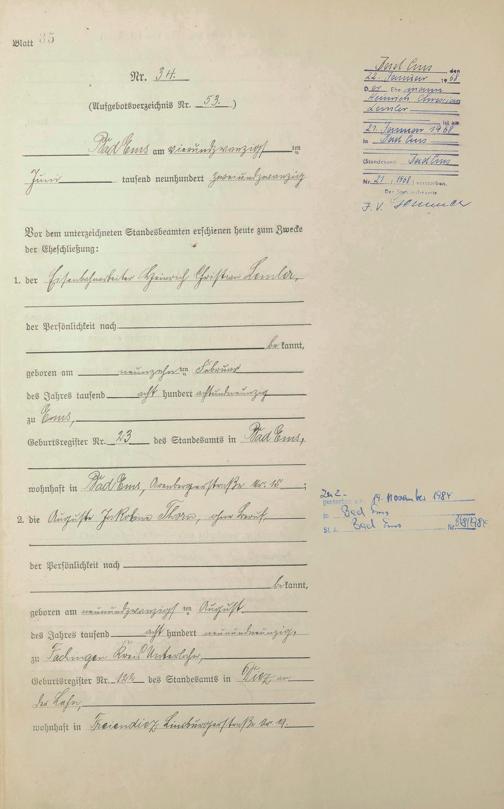 Blatt 85
Nr. 34.
(Aufgebotsverzeichnis Nr. 53.)
Bad Ems am vierundzwanzigsten
Juni tausend neunhundert zweiundzwanzig
Vor dem unterzeichneten Standesbeamten erschienen heute zum Zwecke
der Eheschließung:
1. der Eisenbahnarbeiter Heinrich Christian Lemler,
der Persönlichkeit nach
bekannt,
geboren am neunzehnten Februar
des Jahres tausend acht hundert achtundneunzig
zu Ems,
Geburtsregister Nr. 23 des Standesamts in Bad Ems,
wohnhaft in Bad Ems, Arenbergerstraße Nr. 15;
2. die Auguste Jakobine Thorn, ohne Beruf,
der Persönlichkeit nach
bekannt,
geboren am neunundzwanzigsten August
des Jahres tausend acht hundert neunundneunzig,
zu Fachingen Kreis Unterlahn,
Geburtsregister Nr. des Standesamts in Diez an
der Lahn,
wohnhaft in Freiendiez, Limburgerstraße Nr.
Bad Ems, den
22. Januar 1968
Der Ehemann
Heinrich Christian
Lemler
ist am
21. Januar 1968
in Bad Ems
Standesamt Bad Ems
Nr. 21/1968 verstorben.
Der Standesbeamte
J. V.
Zu 2.
gestorben am 19. November 1984
in Bad Ems
St. A. Bad Ems Nr.